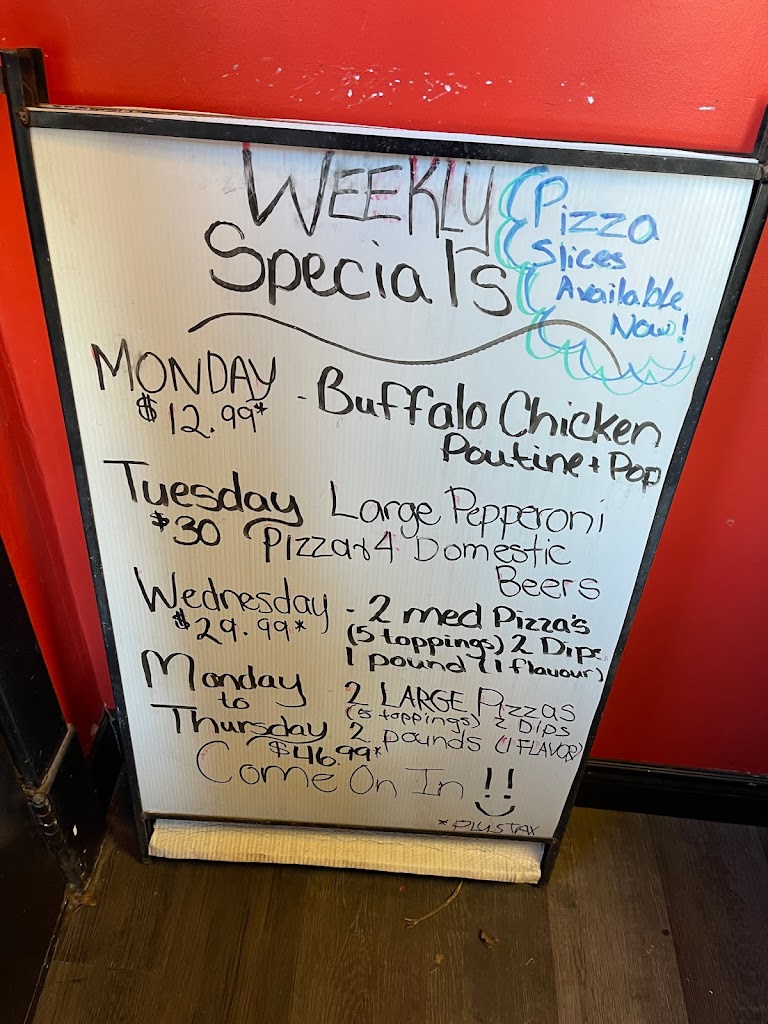 WEEKLY
Specials
Pizza
Slices
Available
Now!
MONDAY - Buffalo Chicken
$12.99* Poutine + Pop
Tuesday Large Pepperoni
$30 Pizza & 4 Domestic
Beers
Wednesday - 2 med Pizza's
$29.99* (5 toppings) 2 Dips
1 pound (1 flavour)
Monday 2 LARGE Pizzas
to (5 toppings) 2 Dips
Thursday 2 pounds (1 FLAVOR)
$46.99*
Come On In !!
*PLUS TAX